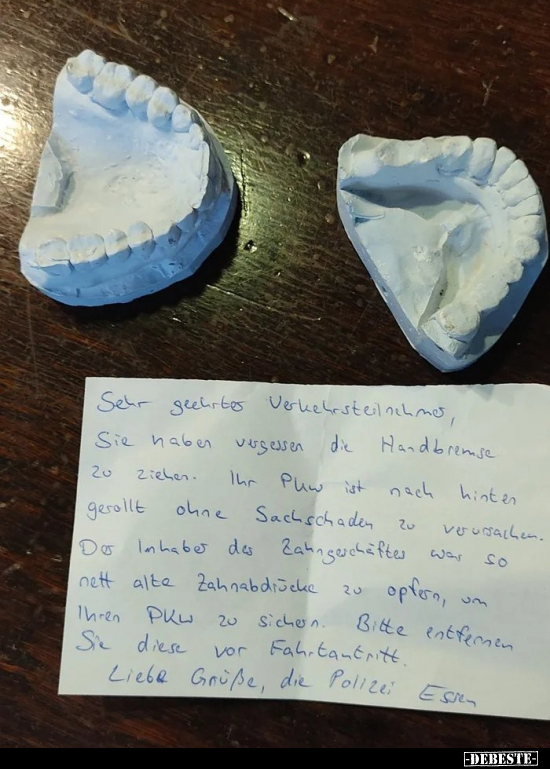 Sehr geehrter Verkehrsteilnehmer,
Sie haben vergessen die Handbremse
zu ziehen. Ihr PKW ist nach hinten
gerollt ohne Sachschaden zu verursachen.
Der Inhaber des Zahngeschäftes war so
nett alte Zahnabdrücke zu opfern, um
Ihren PKW zu sichern. Bitte entfernen
Sie diese vor Fahrtantritt.
Liebe Grüße, die Polizei Essen
-DEBESTE-